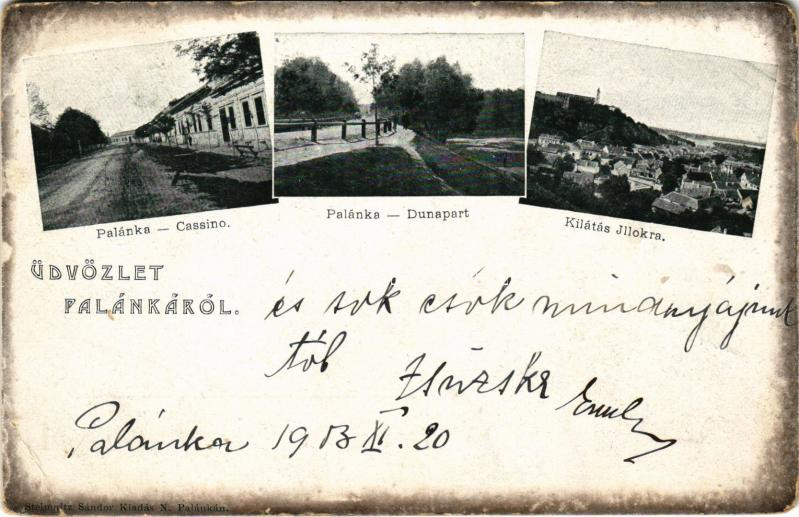 Palánka — Cassino.
Palánka — Dunapart
Kilátás Jllokra.
ÜDVÖZLET
PALÁNKÁRÓL.
és sok csók mindnyájunk
tól
Palánka 1903 XI. 20
Steinnitz Sándor Kiadás N. Palánkán.